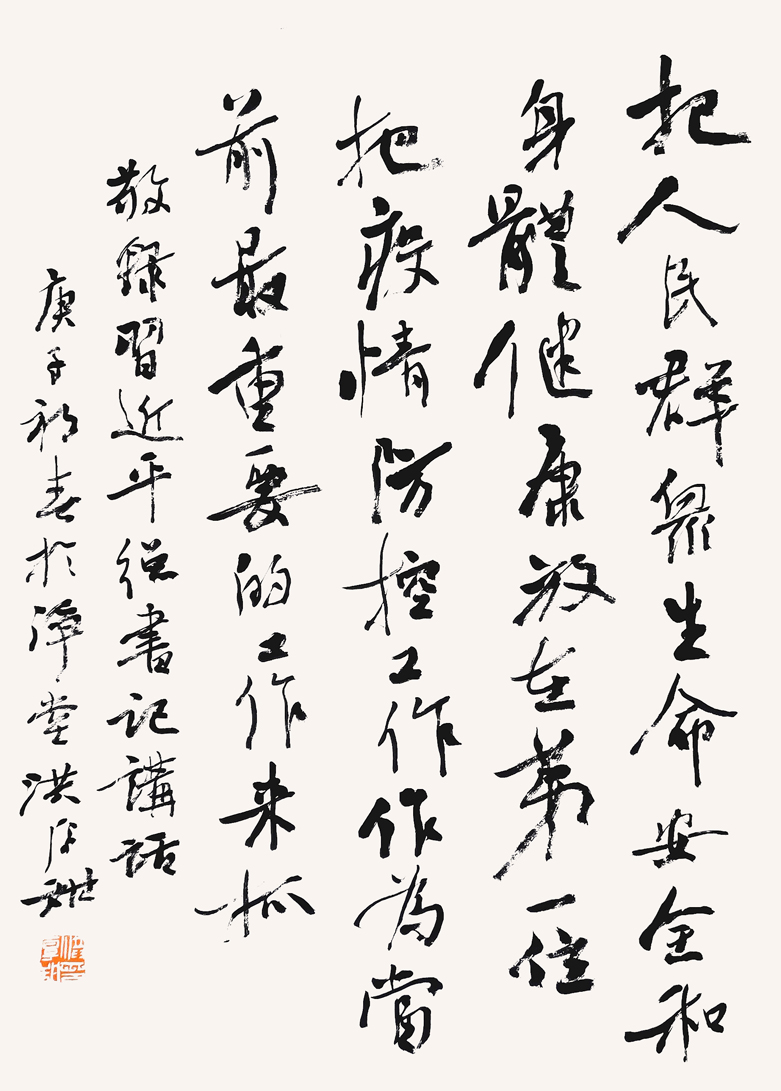 把人民群眾生命安全和
身體健康放在第一位
把疫情防控工作作為當
前最重要的工作来抓
敬錄習近平總書記講話
庚子初春於淨堂洪厚甜